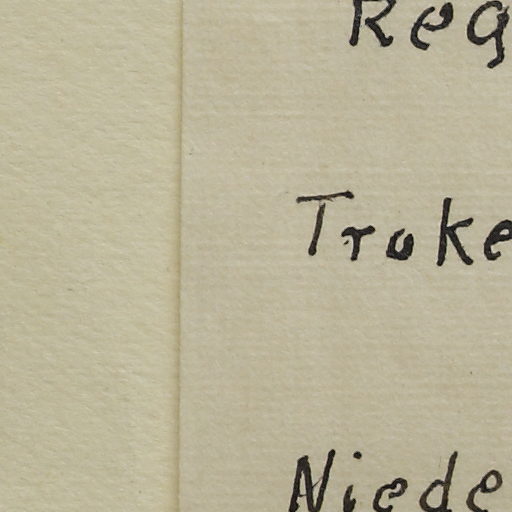 Reg
Troke
Niede